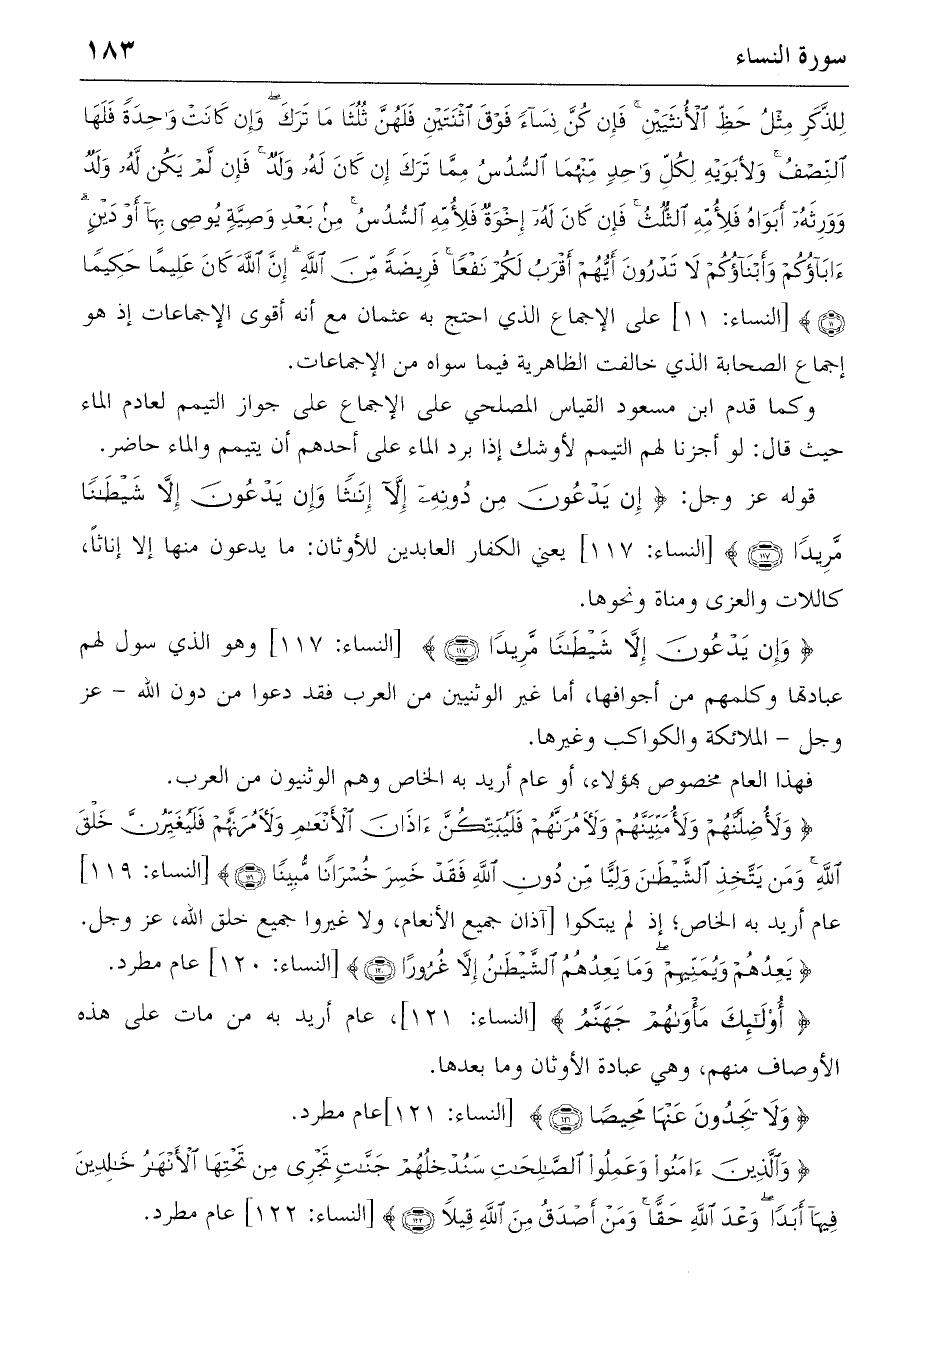 سورة النساء ١٨٣
لِلذَّكَرِ مِثْلُ حَظِّ ٱلْأُنثَيَيْنِ ۚ فَإِن كُنَّ نِسَآءً فَوْقَ ٱثْنَتَيْنِ فَلَهُنَّ ثُلُثَا مَا تَرَكَ ۖ وَإِن كَانَتْ وَٰحِدَةً فَلَهَا
ٱلنِّصْفُ ۚ وَلِأَبَوَيْهِ لِكُلِّ وَٰحِدٍ مِّنْهُمَا ٱلسُّدُسُ مِمَّا تَرَكَ إِن كَانَ لَهُۥ وَلَدٌ ۚ فَإِن لَّمْ يَكُن لَّهُۥ وَلَدٌ
وَوَرِثَهُۥٓ أَبَوَاهُ فَلِأُمِّهِ ٱلثُّلُثُ ۚ فَإِن كَانَ لَهُۥٓ إِخْوَةٌ فَلِأُمِّهِ ٱلسُّدُسُ ۚ مِنۢ بَعْدِ وَصِيَّةٍ يُوصِى بِهَآ أَوْ دَيْنٍ ۗ
ءَابَآؤُكُمْ وَأَبْنَآؤُكُمْ لَا تَدْرُونَ أَيُّهُمْ أَقْرَبُ لَكُمْ نَفْعًا ۚ فَرِيضَةً مِّنَ ٱللَّهِ ۗ إِنَّ ٱللَّهَ كَانَ عَلِيمًا حَكِيمًا
﴿١١﴾ [النساء: ١١] على الإجماع الذي احتج به عثمان مع أنه أقوى الإجماعات إذ هو
إجماع الصحابة الذي خالفت الظاهرية فيما سواه من الإجماعات.
وكما قدم ابن مسعود القياس المصلحي على الإجماع على جواز التيمم لعادم الماء
حيث قال: لو أجزنا لهم التيمم لأوشك إذا برد الماء على أحدهم أن يتيمم والماء حاضر.
قوله عز وجل: ﴿ إِن يَدْعُونَ مِن دُونِهِۦٓ إِلَّآ إِنَٰثًا وَإِن يَدْعُونَ إِلَّا شَيْطَٰنًا
مَّرِيدًا ١١٧ ﴾ [النساء: ١١٧] يعني الكفار العابدين للأوثان: ما يدعون منها إلا إناثاً،
كاللات والعزى ومناة ونحوها.
﴿ وَإِن يَدْعُونَ إِلَّا شَيْطَٰنًا مَّرِيدًا ١١٧ ﴾ [النساء: ١١٧] وهو الذي سول لهم
عبادتها وكلمهم من أجوافها، أما غير الوثنيين من العرب فقد دعوا من دون الله – عز
وجل – الملائكة والكواكب وغيرها.
فهذا العام مخصوص بهؤلاء، أو عام أريد به الخاص وهم الوثنيون من العرب.
﴿ وَلَأُضِلَّنَّهُمْ وَلَأُمَنِّيَنَّهُمْ وَلَءَامُرَنَّهُمْ فَلَيُبَتِّكُنَّ ءَاذَانَ ٱلْأَنْعَٰمِ وَلَءَامُرَنَّهُمْ فَلَيُغَيِّرُنَّ خَلْقَ
ٱللَّهِ ۚ وَمَن يَتَّخِذِ ٱلشَّيْطَٰنَ وَلِيًّا مِّن دُونِ ٱللَّهِ فَقَدْ خَسِرَ خُسْرَانًا مُّبِينًا ١١٩ ﴾ [النساء: ١١٩]
عام أريد به الخاص؛ إذ لم يبتكوا [آذان جميع الأنعام، ولا غيروا جميع خلق الله، عز وجل.
﴿ يَعِدُهُمْ وَيُمَنِّيهِمْ ۖ وَمَا يَعِدُهُمُ ٱلشَّيْطَٰنُ إِلَّا غُرُورًا ١٢٠ ﴾ [النساء: ١٢٠] عام مطرد.
﴿ أُوْلَٰٓئِكَ مَأْوَىٰهُمْ جَهَنَّمُ ﴾ [النساء: ١٢١]، عام أريد به من مات على هذه
الأوصاف منهم، وهي عبادة الأوثان وما بعدها.
﴿ وَلَا يَجِدُونَ عَنْهَا مَحِيصًا ١٢١ ﴾ [النساء: ١٢١]عام مطرد.
﴿ وَٱلَّذِينَ ءَامَنُوا۟ وَعَمِلُوا۟ ٱلصَّٰلِحَٰتِ سَنُدْخِلُهُمْ جَنَّٰتٍ تَجْرِى مِن تَحْتِهَا ٱلْأَنْهَٰرُ خَٰلِدِينَ
فِيهَآ أَبَدًا ۖ وَعْدَ ٱللَّهِ حَقًّا ۚ وَمَنْ أَصْدَقُ مِنَ ٱللَّهِ قِيلًا ١٢٢ ﴾ [النساء: ١٢٢] عام مطرد.